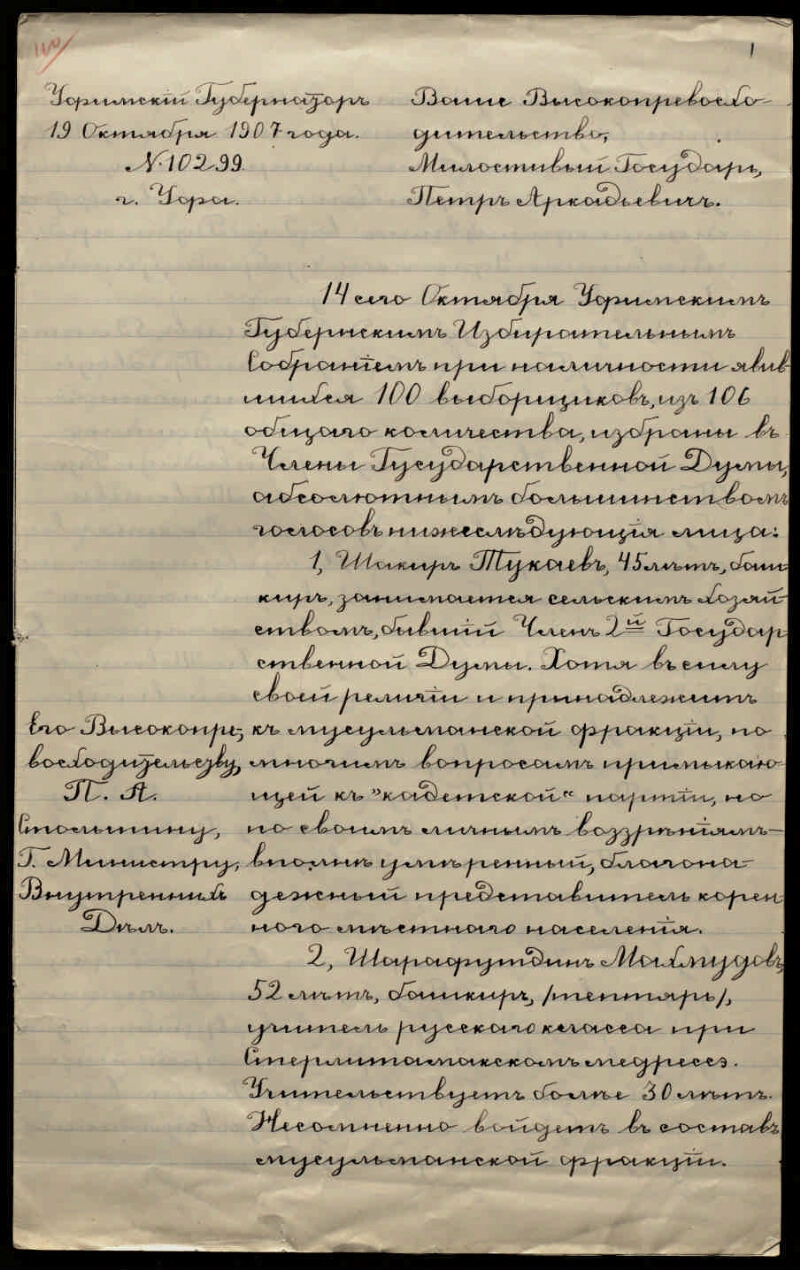 1
Уфимскій Губернаторъ
19 Октября 1907 года.
№ 10299.
г. Уфа.
Ваше Высокопревосхо-
дительство,
Милостивый Государь,
Петръ Аркадьевичъ.
14 сего Октября Уфимскимъ
Губернскимъ Избирательнымъ
Собраніемъ при наличности явив
шихся 100 выборщиковъ, изъ 106
общаго количества, избраны въ
Члены Государственной Думы,
абсолютнымъ большинствомъ
голосовъ нижеслѣдующія лица:
1, Шакиръ Тукаевъ, 45 лѣтъ, баш
киръ, занимается сельскимъ хозяй
ствомъ, бывшій Членъ 2й Государ
ственной Думы. Хотя въ силу
своей религіи и принадлежитъ
къ мусульманской фракціи, по
многимъ вопросамъ примыкаю
щей къ "кадетской" партіи, но
по своимъ личнымъ воззрѣніямъ—
вполнѣ умѣренный, благона
дежный представитель корен
ного мѣстнаго населенія.
2, Шарафутдинъ Махмудовъ,
52 лѣтъ, башкиръ, /тептярь/,
учитель русскаго класса при
Стерлитамакскомъ медрессэ.
Учительствуетъ болѣе 30 лѣтъ.
Несомненно войдетъ въ составъ
мусульманской фракціи.
Его Высокопре-
восходительству,
П. А.
Столыпину,
Г. Министру,
Внутреннихъ
Дѣлъ.